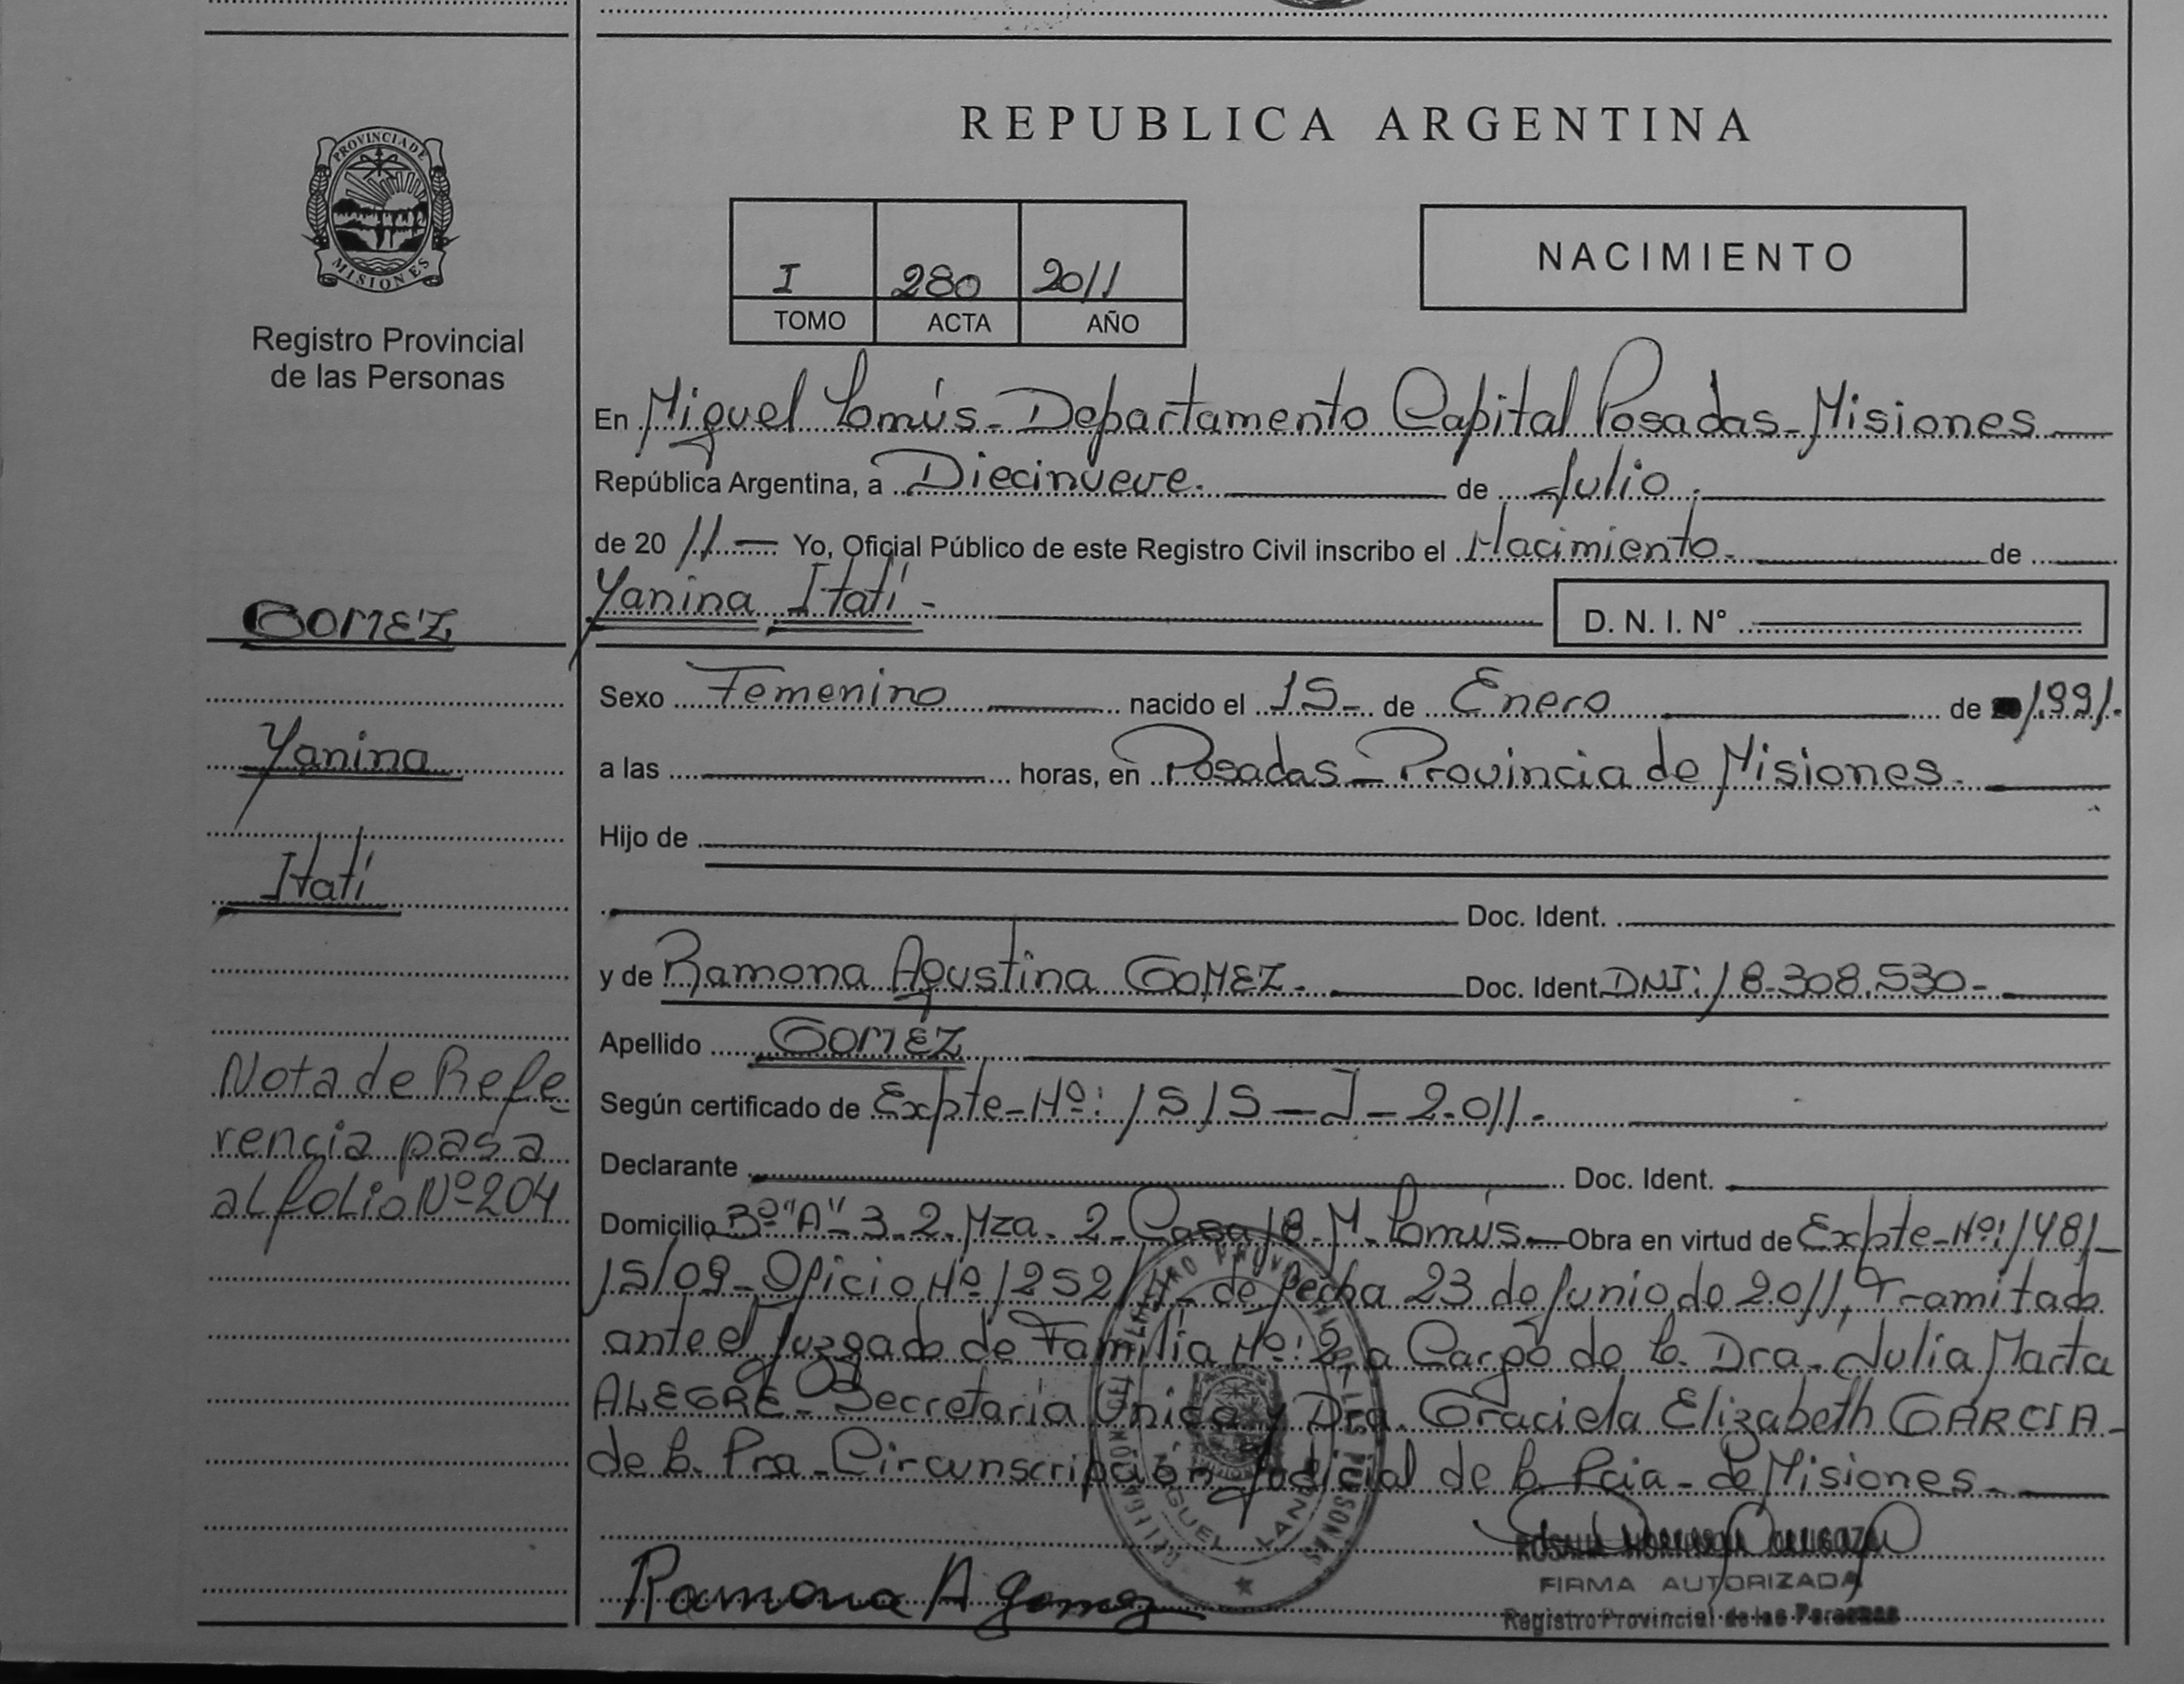 PROVINCIA DE
MISIONES
Registro Provincial
de las Personas
GOMEZ
Yanina
Itatí
Nota de Refe-
rencia pasa
al folio Nº 204
REPUBLICA ARGENTINA
I 280 2011
TOMO ACTA AÑO
NACIMIENTO
En Miguel Lanús - Departamento Capital Posadas - Misiones
República Argentina, a Diecinueve. de Julio.
de 2011 Yo, Oficial Público de este Registro Civil inscribo el Nacimiento. de
Yanina Itatí - D. N. I. N°
Sexo Femenino nacido el 15 - de Enero de 1991.
a las horas, en Posadas - Provincia de Misiones.
Hijo de
Doc. Ident.
y de Ramona Agustina GOMEZ. Doc. Ident. DNI: 18.308.530 -
Apellido GOMEZ
Según certificado de Expte - Nº: 1515 - J - 2.011.
Declarante Doc. Ident.
Domicilio Bº "A" - 3.2. Mza. 2 - Casa 18. M. Lanús - Obra en virtud de Expte - Nº: 1481 -
15/09 - Oficio Nº 1252/11 - de fecha 23 de Junio de 2.011, Tramitado
ante el Juzgado de Familia Nº: 2, a Cargo de la Dra. Julia Marta
ALEGRE - Secretaría Única y Dra. Graciela Elizabeth GARCIA -
de la Pra - Circunscripción Judicial de la Pcia - de Misiones.
Ramona A Gomez
FIRMA AUTORIZADA
Registro Provincial de las Personas